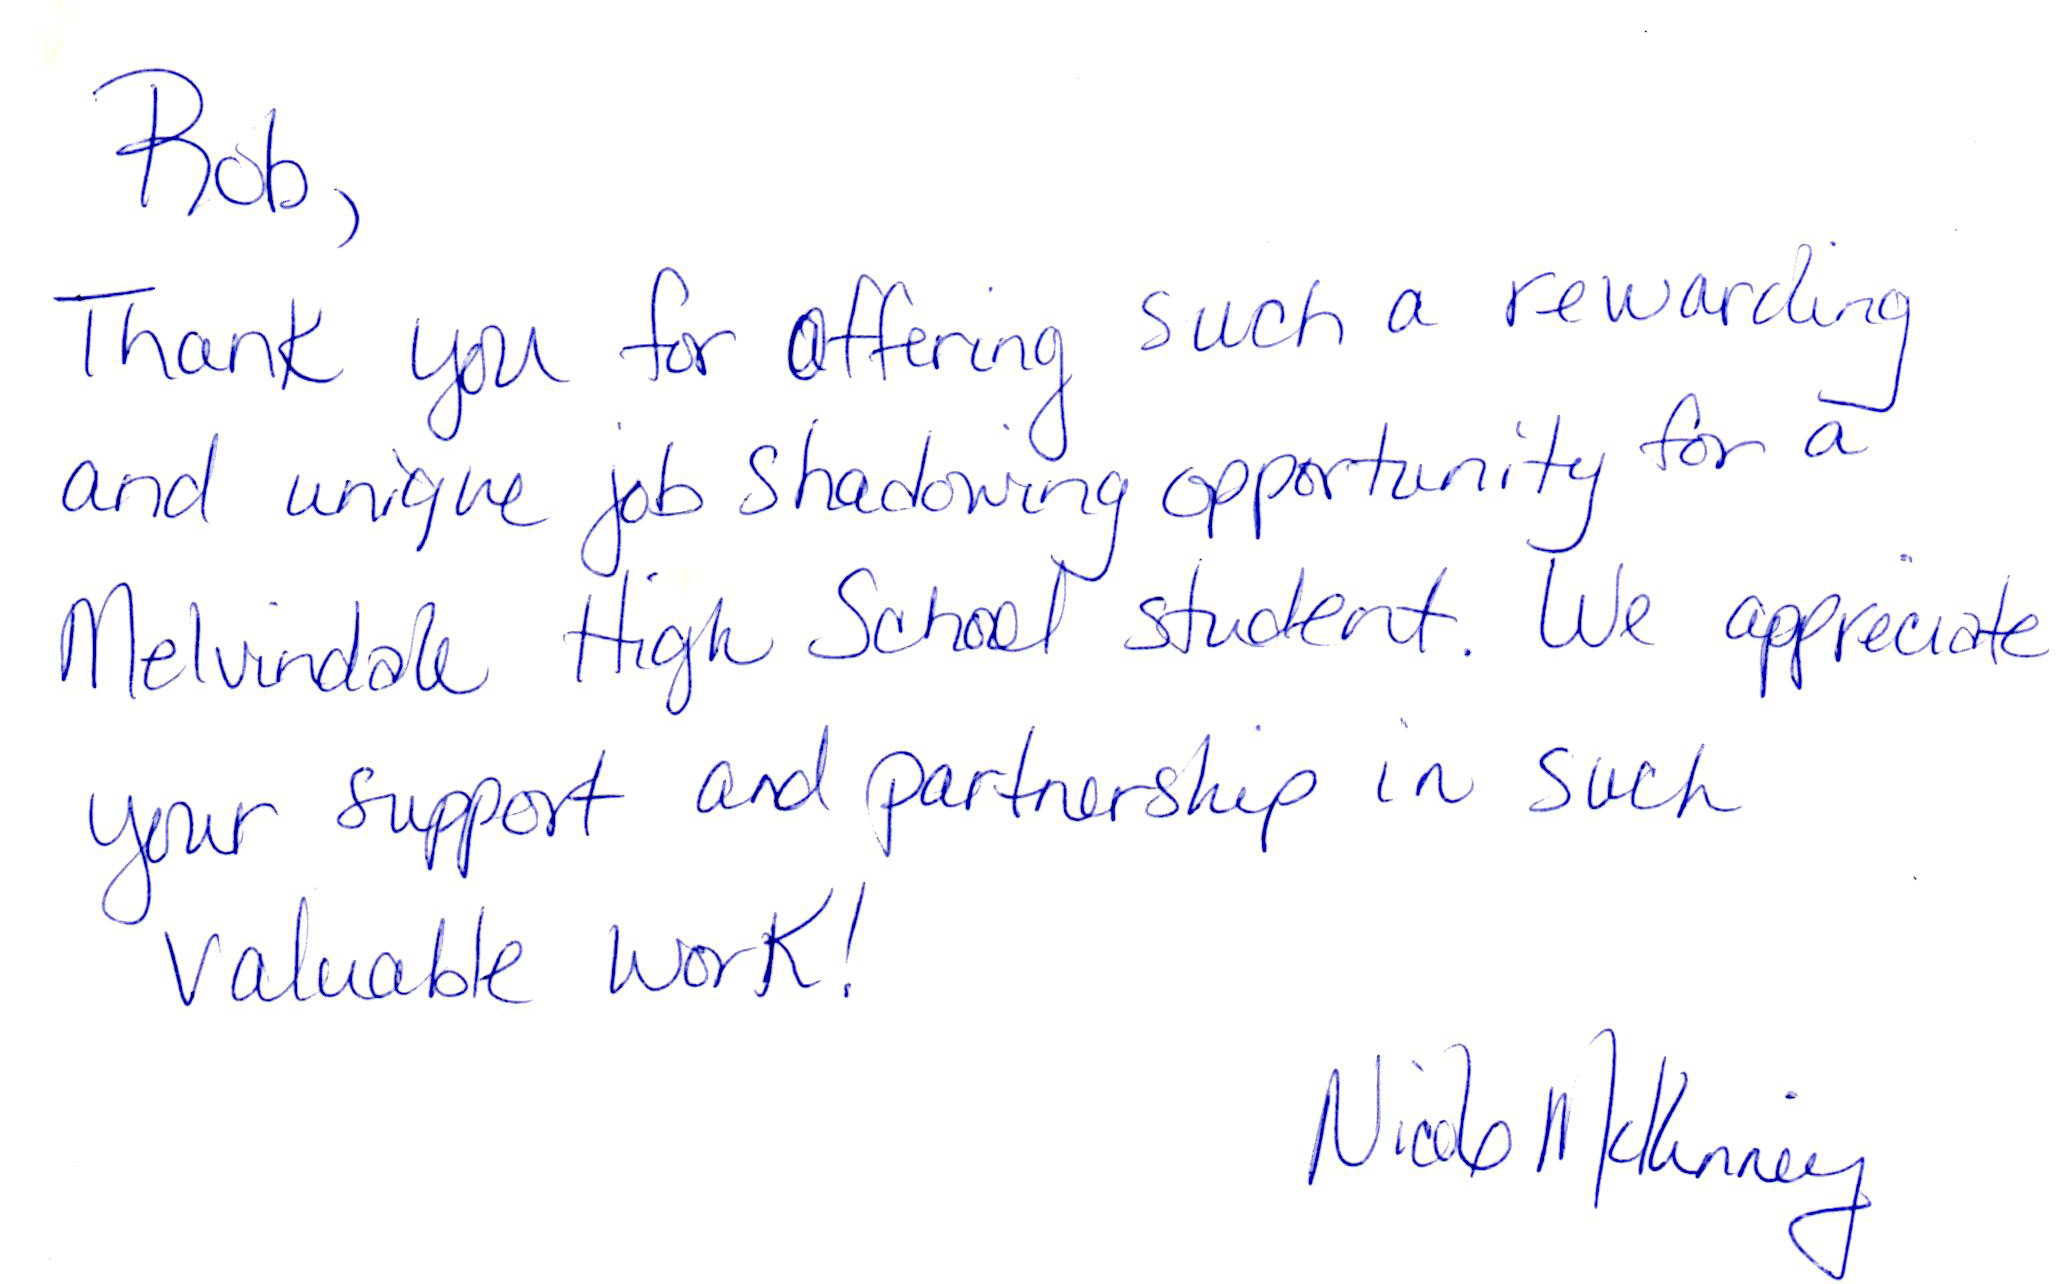 Rob,
Thank you for offering such a rewarding
and unique job shadowing opportunity for a
Melvindale High School student. We appreciate
your support and partnership in such
valuable work!
Nicole McKinney